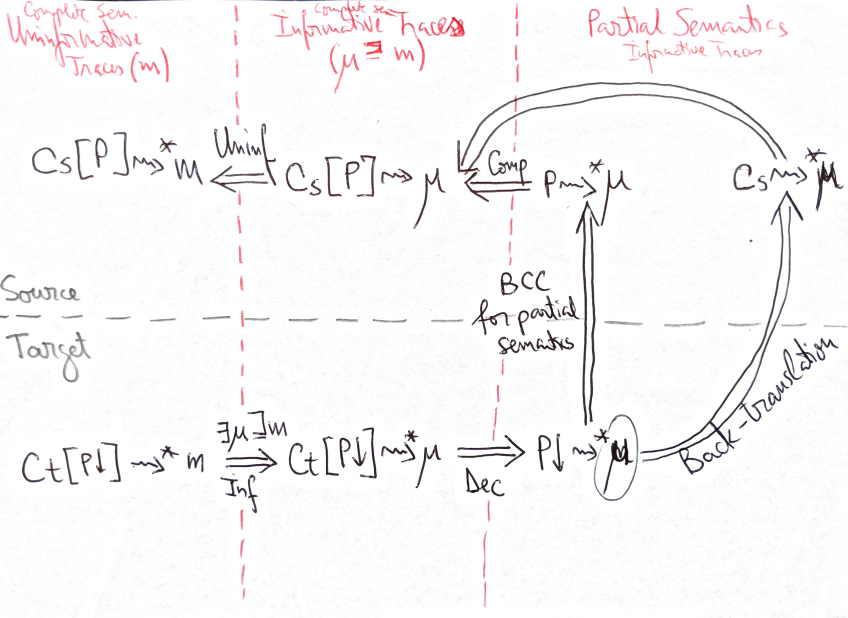 Complete Sem.
Uninformative
Traces (m)
complete sem
Informative Traces
(μ ⊒ m)
Partial Semantics
Informative Traces
Cs[P] ⇝* m
Uninf
Cs[P] ⇝ μ
Comp
P ⇝* μ
Cs ⇝* μ
BCC
for partial
semantics
Source
Target
Back-translation
Ct[P↓] ⇝* m
∃μ⊒m
Inf
Ct[P↓] ⇝* μ
Dec
P↓ ⇝* μ